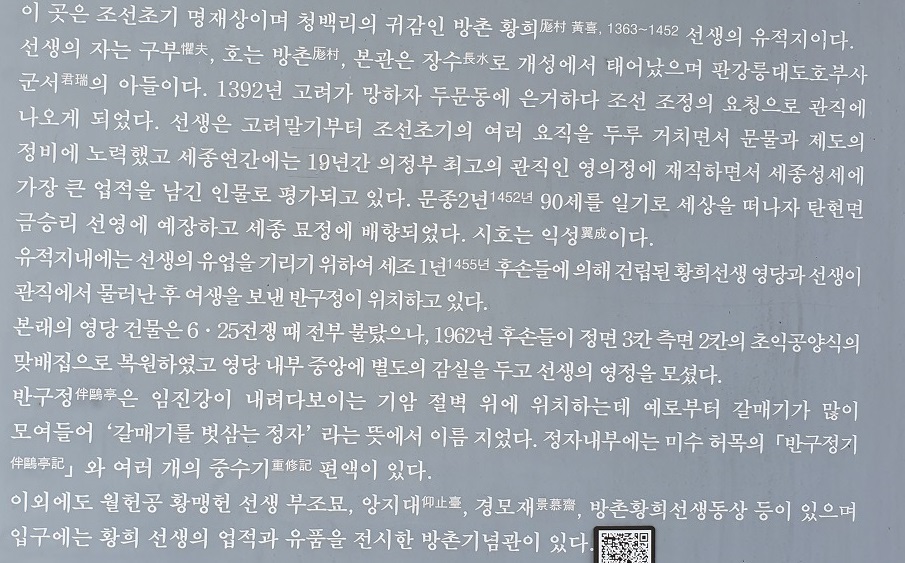 이 곳은 조선초기 명재상이며 청백리의 귀감인 방촌 황희厖村 黃喜, 1363~1452 선생의 유적지이다.
선생의 자는 구부懼夫, 호는 방촌厖村, 본관은 장수長水로 개성에서 태어났으며 판강릉대도호부사
군서君瑞의 아들이다. 1392년 고려가 망하자 두문동에 은거하다 조선 조정의 요청으로 관직에
나오게 되었다. 선생은 고려말기부터 조선초기의 여러 요직을 두루 거치면서 문물과 제도의
정비에 노력했고 세종연간에는 19년간 의정부 최고의 관직인 영의정에 재직하면서 세종성세에
가장 큰 업적을 남긴 인물로 평가되고 있다. 문종2년1452년 90세를 일기로 세상을 떠나자 탄현면
금승리 선영에 예장하고 세종 묘정에 배향되었다. 시호는 익성翼成이다.
유적지내에는 선생의 유업을 기리기 위하여 세조 1년1455년 후손들에 의해 건립된 황희선생 영당과 선생이
관직에서 물러난 후 여생을 보낸 반구정이 위치하고 있다.
본래의 영당 건물은 6·25전쟁 때 전부 불탔으나, 1962년 후손들이 정면 3칸 측면 2칸의 초익공양식의
맞배집으로 복원하였고 영당 내부 중앙에 별도의 감실을 두고 선생의 영정을 모셨다.
반구정伴鷗亭은 임진강이 내려다보이는 기암 절벽 위에 위치하는데 예로부터 갈매기가 많이
모여들어 '갈매기를 벗삼는 정자' 라는 뜻에서 이름 지었다. 정자내부에는 미수 허목의 「반구정기
伴鷗亭記」와 여러 개의 중수기重修記 편액이 있다.
이외에도 월헌공 황맹헌 선생 부조묘, 앙지대仰止臺, 경모재景慕齋, 방촌황희선생동상 등이 있으며
입구에는 황희 선생의 업적과 유품을 전시한 방촌기념관이 있다.